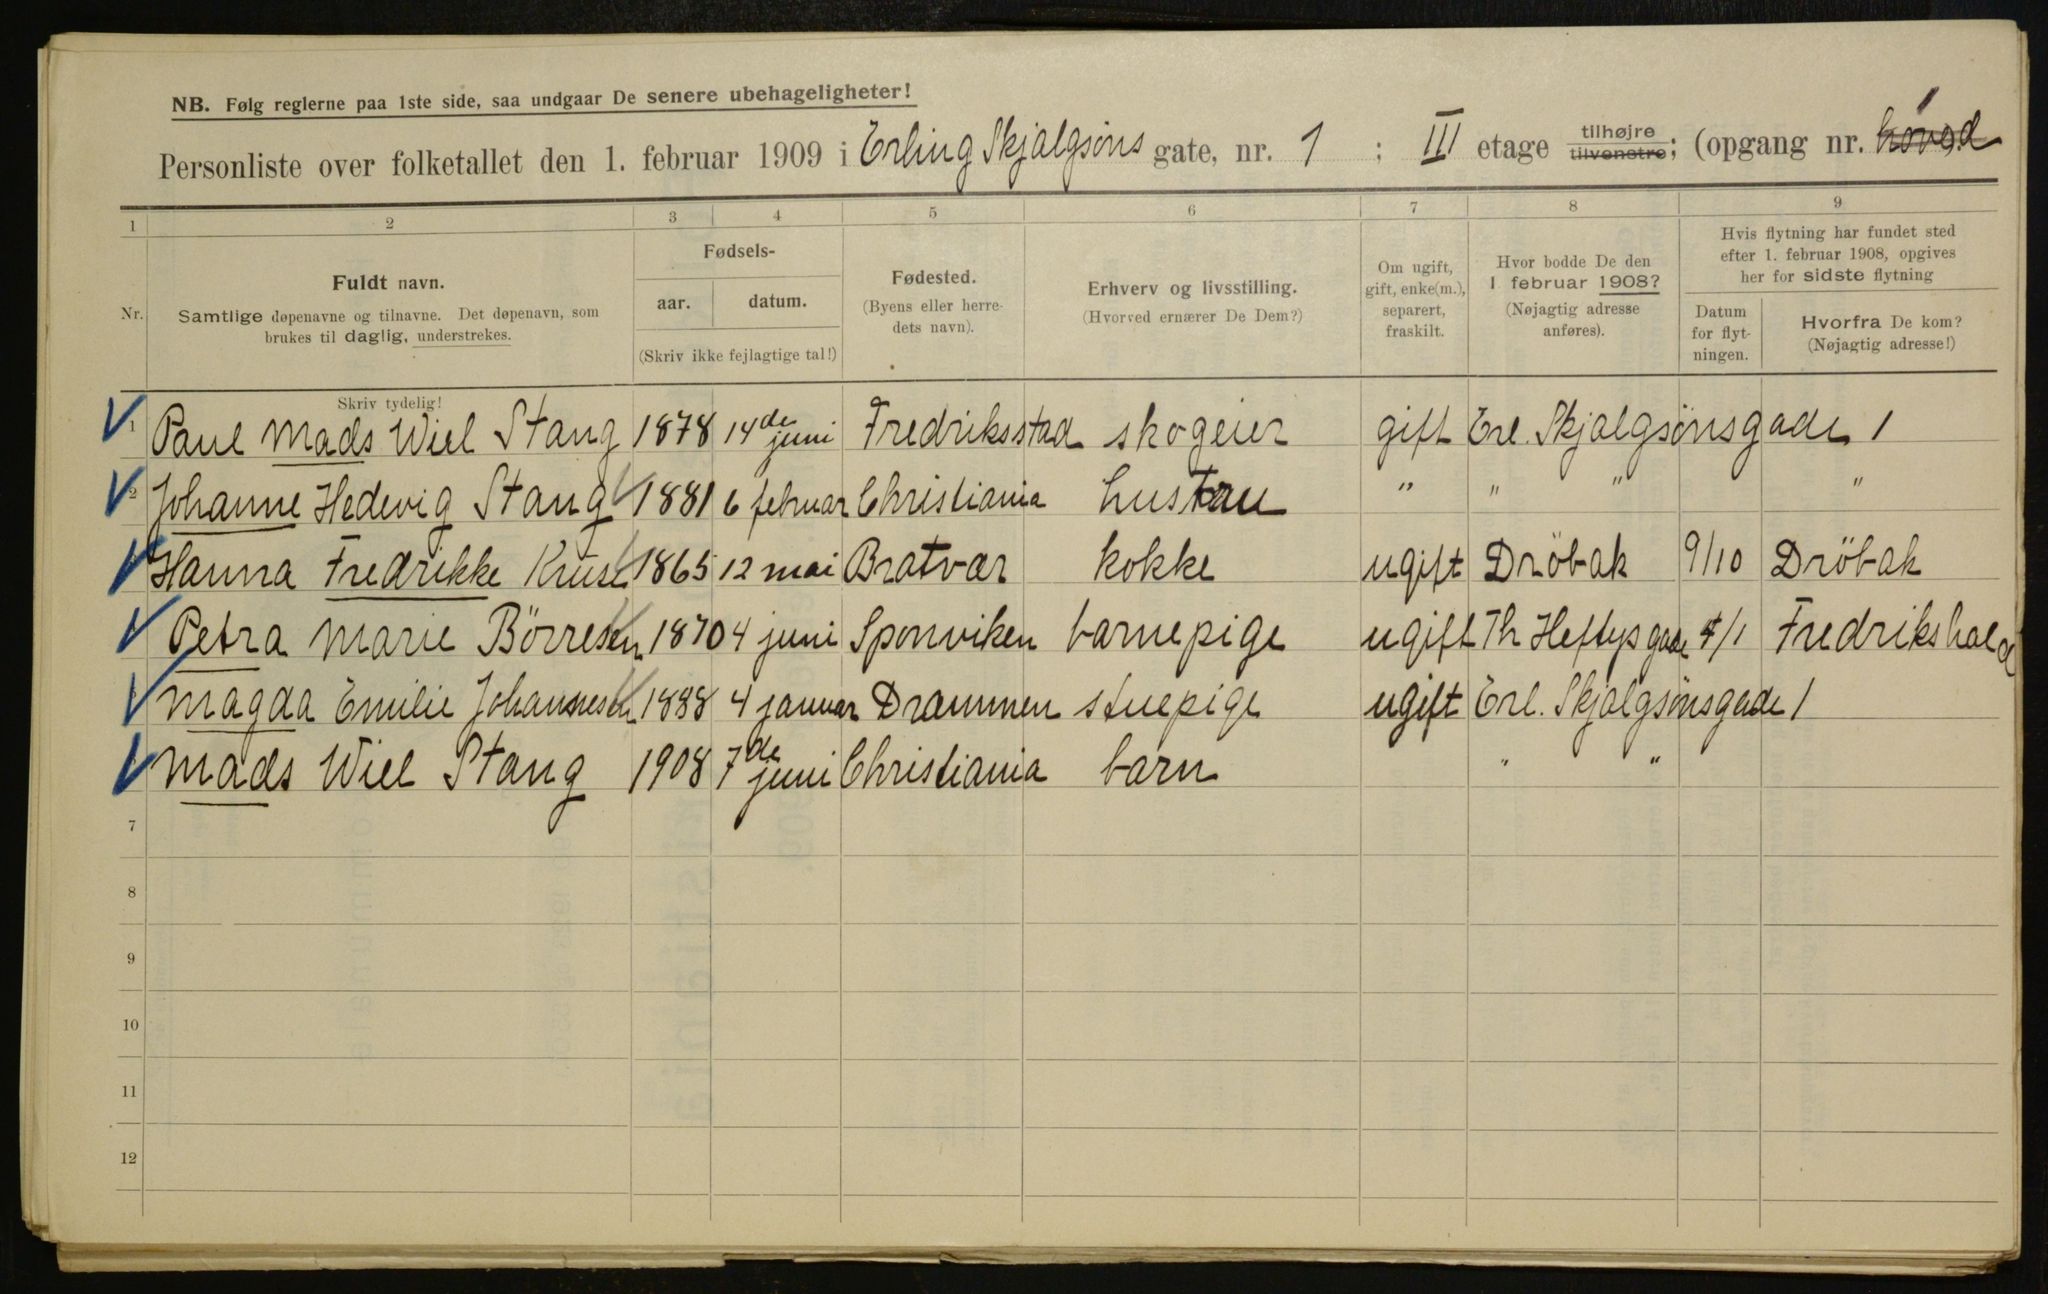 NB. Følg reglerne paa 1ste side, saa undgaar De senere ubehageligheter!
Personliste over folketallet den 1. februar 1909 i Erling Skjalgsøns gate, nr. 1 ; III etage tilhøjre tilvenstre; (opgang nr. hoved 1
1 2 3 4 5 6 7 8 9
Nr.
Fuldt navn.
Samtlige døpenavne og tilnavne. Det døpenavn, som
brukes til daglig, understrekes.
Fødsels-
aar. datum.
(Skriv ikke fejlagtige tal!)
Fødested.
(Byens eller herre-
dets navn).
Erhverv og livsstilling.
(Hvorved ernærer De Dem?)
Om ugift,
gift, enke(m.),
separert,
fraskilt.
Hvor bodde De den
1 februar 1908?
(Nøjagtig adresse
anføres).
Hvis flytning har fundet sted
efter 1. februar 1908, opgives
her for sidste flytning
Datum
for flyt-
ningen.
Hvorfra De kom?
(Nøjagtig adresse!)
Skriv tydelig!
1 Paul Mads Wiel Stang 1878 14de juni Fredriksstad skogeier gift Erl. Skjalgsönsgade 1
2 Johanne Hedevig Stang 1881 6 februar Christiania husfrau " " " "
Hanna Fredrikke Kruse 1865 12 mai Bratvær kokke ugift Dröbak 9/10 Dröbak
Petra Marie Börresen 1870 4 juni Sponviken barnepige ugift Th Heftysgade 4/1 Fredrikshald
Magda Emilie Johannesen 1888 4 januar Drammen stuepige ugift Erl. Skjalgsönsgade 1
Mads Wiel Stang 1908 7de juni Christiania barn " "
7
8
9
10
11
12